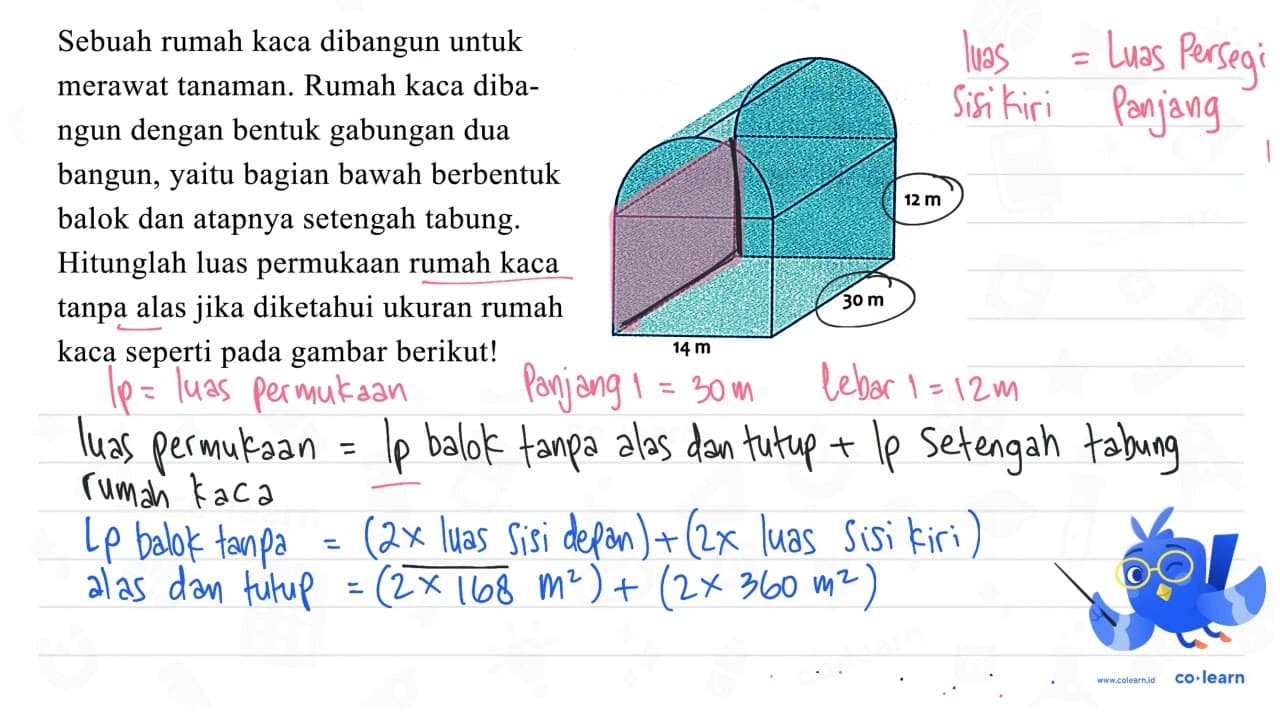 Sebuah rumah kaca dibangun untuk
merawat tanaman. Rumah kaca diba-
ngun dengan bentuk gabungan dua
bangun, yaitu bagian bawah berbentuk
balok dan atapnya setengah tabung.
Hitunglah luas permukaan rumah kaca
tanpa alas jika diketahui ukuran rumah
kaca seperti pada gambar berikut!
12 m
30 m
14 m
luas = Luas Persegi
Sisi kiri Panjang
lp = luas permukaan Panjang 1 = 30 m lebar 1 = 12 m
luas permukaan = lp balok tanpa alas dan tutup + lp setengah tabung
rumah kaca
Lp balok tanpa = (2x luas sisi depan) + (2x luas sisi kiri)
alas dan tutup = (2 x 168 m²) + (2x 360 m²)
www.colearn.id co·learn